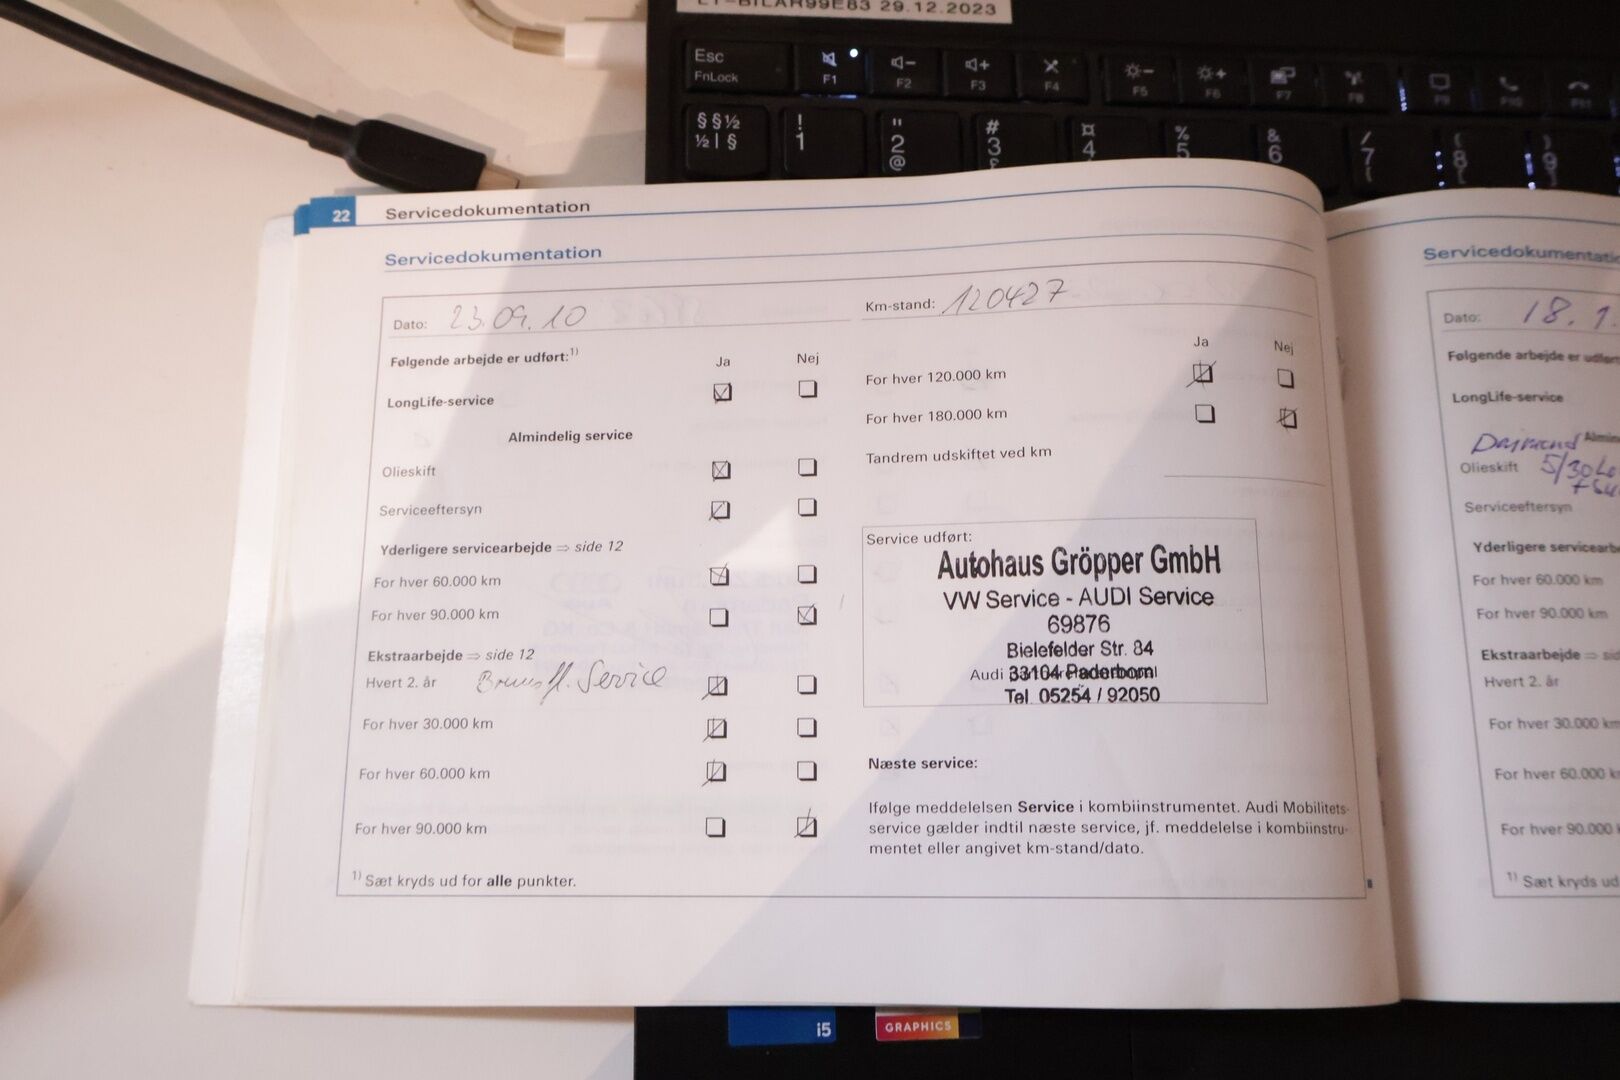 LT-BILAR99E83 29.12.2023
Esc
FnLock
F1
F2
F3
F4
F5
F6
F7
F8
F9
F10
F11
§ § ½
½ | §
!
1
"
2
@
#
3
£
¤
4
%
5
&
6
/
7
{
(
8
[
)
9
]
22
Servicedokumentation
Servicedokumentation
Dato: 23.09.10
Km-stand: 120427
Følgende arbejde er udført:1)
Ja
Nej
LongLife-service
Almindelig service
Olieskift
Serviceeftersyn
Yderligere servicearbejde ⇒ side 12
For hver 60.000 km
For hver 90.000 km
Ekstraarbejde ⇒ side 12
Hvert 2. år
Service
For hver 30.000 km
For hver 60.000 km
For hver 90.000 km
1) Sæt kryds ud for alle punkter.
Ja
Nej
For hver 120.000 km
For hver 180.000 km
Tandrem udskiftet ved km
Service udført:
Autohaus Gröpper GmbH
VW Service - AUDI Service
69876
Bielefelder Str. 84
Audi
33104 Paderborn
Tel. 05254 / 92050
Næste service:
Ifølge meddelelsen Service i kombiinstrumentet. Audi Mobilitets-
service gælder indtil næste service, jf. meddelelse i kombiinstru-
mentet eller angivet km-stand/dato.
Servicedokumentatio
Dato: 18.1.
Følgende arbejde er udført
LongLife-service
Almin
Olieskift 5/30
Serviceeftersyn
Yderligere servicearb
For hver 60.000 km
For hver 90.000 km
Ekstraarbejde ⇒ sid
Hvert 2. år
For hver 30.000 km
For hver 60.000 km
For hver 90.000 k
1) Sæt kryds ud
i5
GRAPHICS